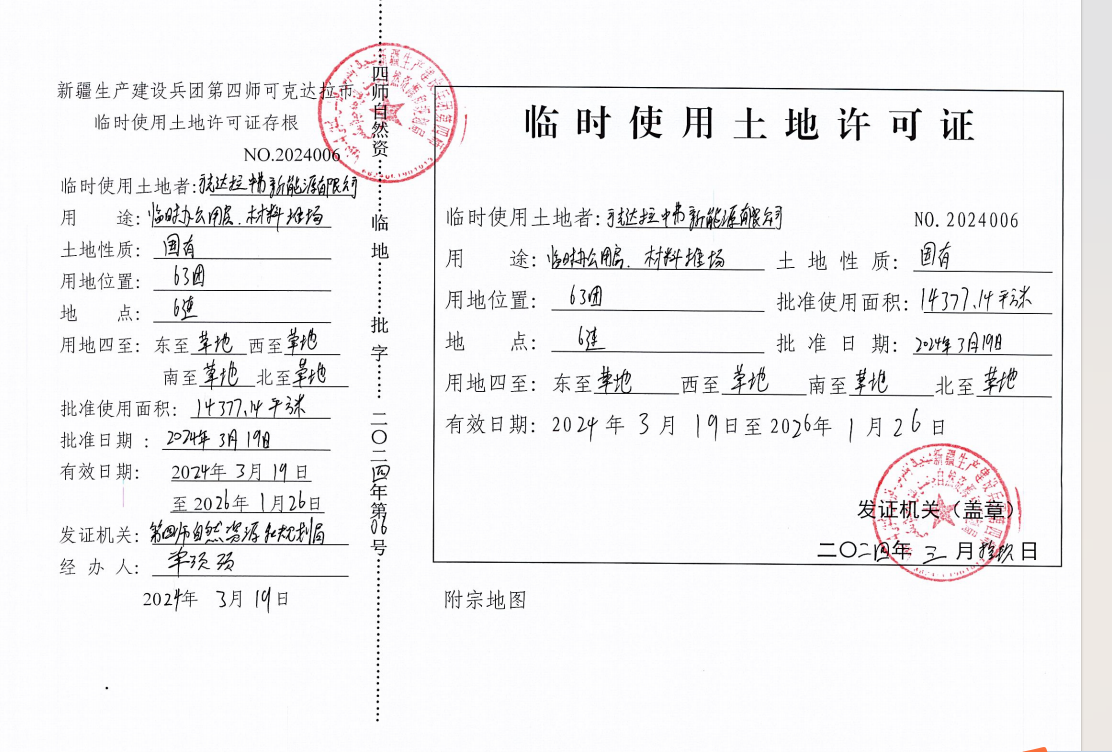 新疆生产建设兵团第四师可克达拉市
临时使用土地许可证存根
NO.2024006
临时使用土地者:可克达拉中韦新能源有限公司
用 途:临时办公用房、材料堆场
土地性质:国有
用地位置:63团
地 点:6连
用地四至:东至草地 西至草地
南至草地 北至草地
批准使用面积:14377.14平方米
批准日期:2024年3月19日
有效日期:2024年3月19日
至2026年1月26日
发证机关:第四师自然资源和规划局
经办人:
2024年3月19日
四师自然资
临地
批字
二〇二四年第06号
临时使用土地许可证
临时使用土地者:可克达拉中韦新能源有限公司 NO.2024006
用 途:临时办公用房、材料堆场 土地性质:国有
用地位置:63团 批准使用面积:14377.14平方米
地 点:6连 批准日期:2024年3月19日
用地四至:东至草地 西至草地 南至草地 北至草地
有效日期:2024年3月19日至2026年1月26日
发证机关(盖章)
二〇二四年三月拾玖日
附宗地图